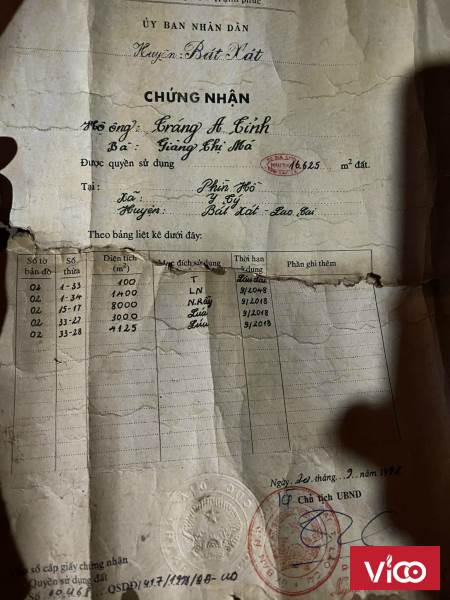 ỦY BAN NHÂN DÂN
Huyện: Bát Xát
CHỨNG NHẬN
Hộ ông: Tráng A Tỉnh
Bà: Giàng Thị Má
Được quyền sử dụng 16.625 m² đất.
Tại: Phìn Hồ
Xã: Y Tý
Huyện: Bát Xát - Lao Cai
Theo bảng liệt kê dưới đây:
Số tờ bản đồ Số thửa Diện tích (m²) Mục đích sử dụng Thời hạn sử dụng Phần ghi thêm
02 1-33 100 T Lâu dài
02 1-34 1400 LN 9/2048
02 15-17 8000 N.Rẫy 9/2018
02 33-27 3000 Lúa 9/2018
02 33-28 4125 Lúa 9/2018
Ngày 20 tháng 9 năm 1998
Chủ tịch UBND
Vào sổ cấp giấy chứng nhận
Quyền sử dụng đất
Vico